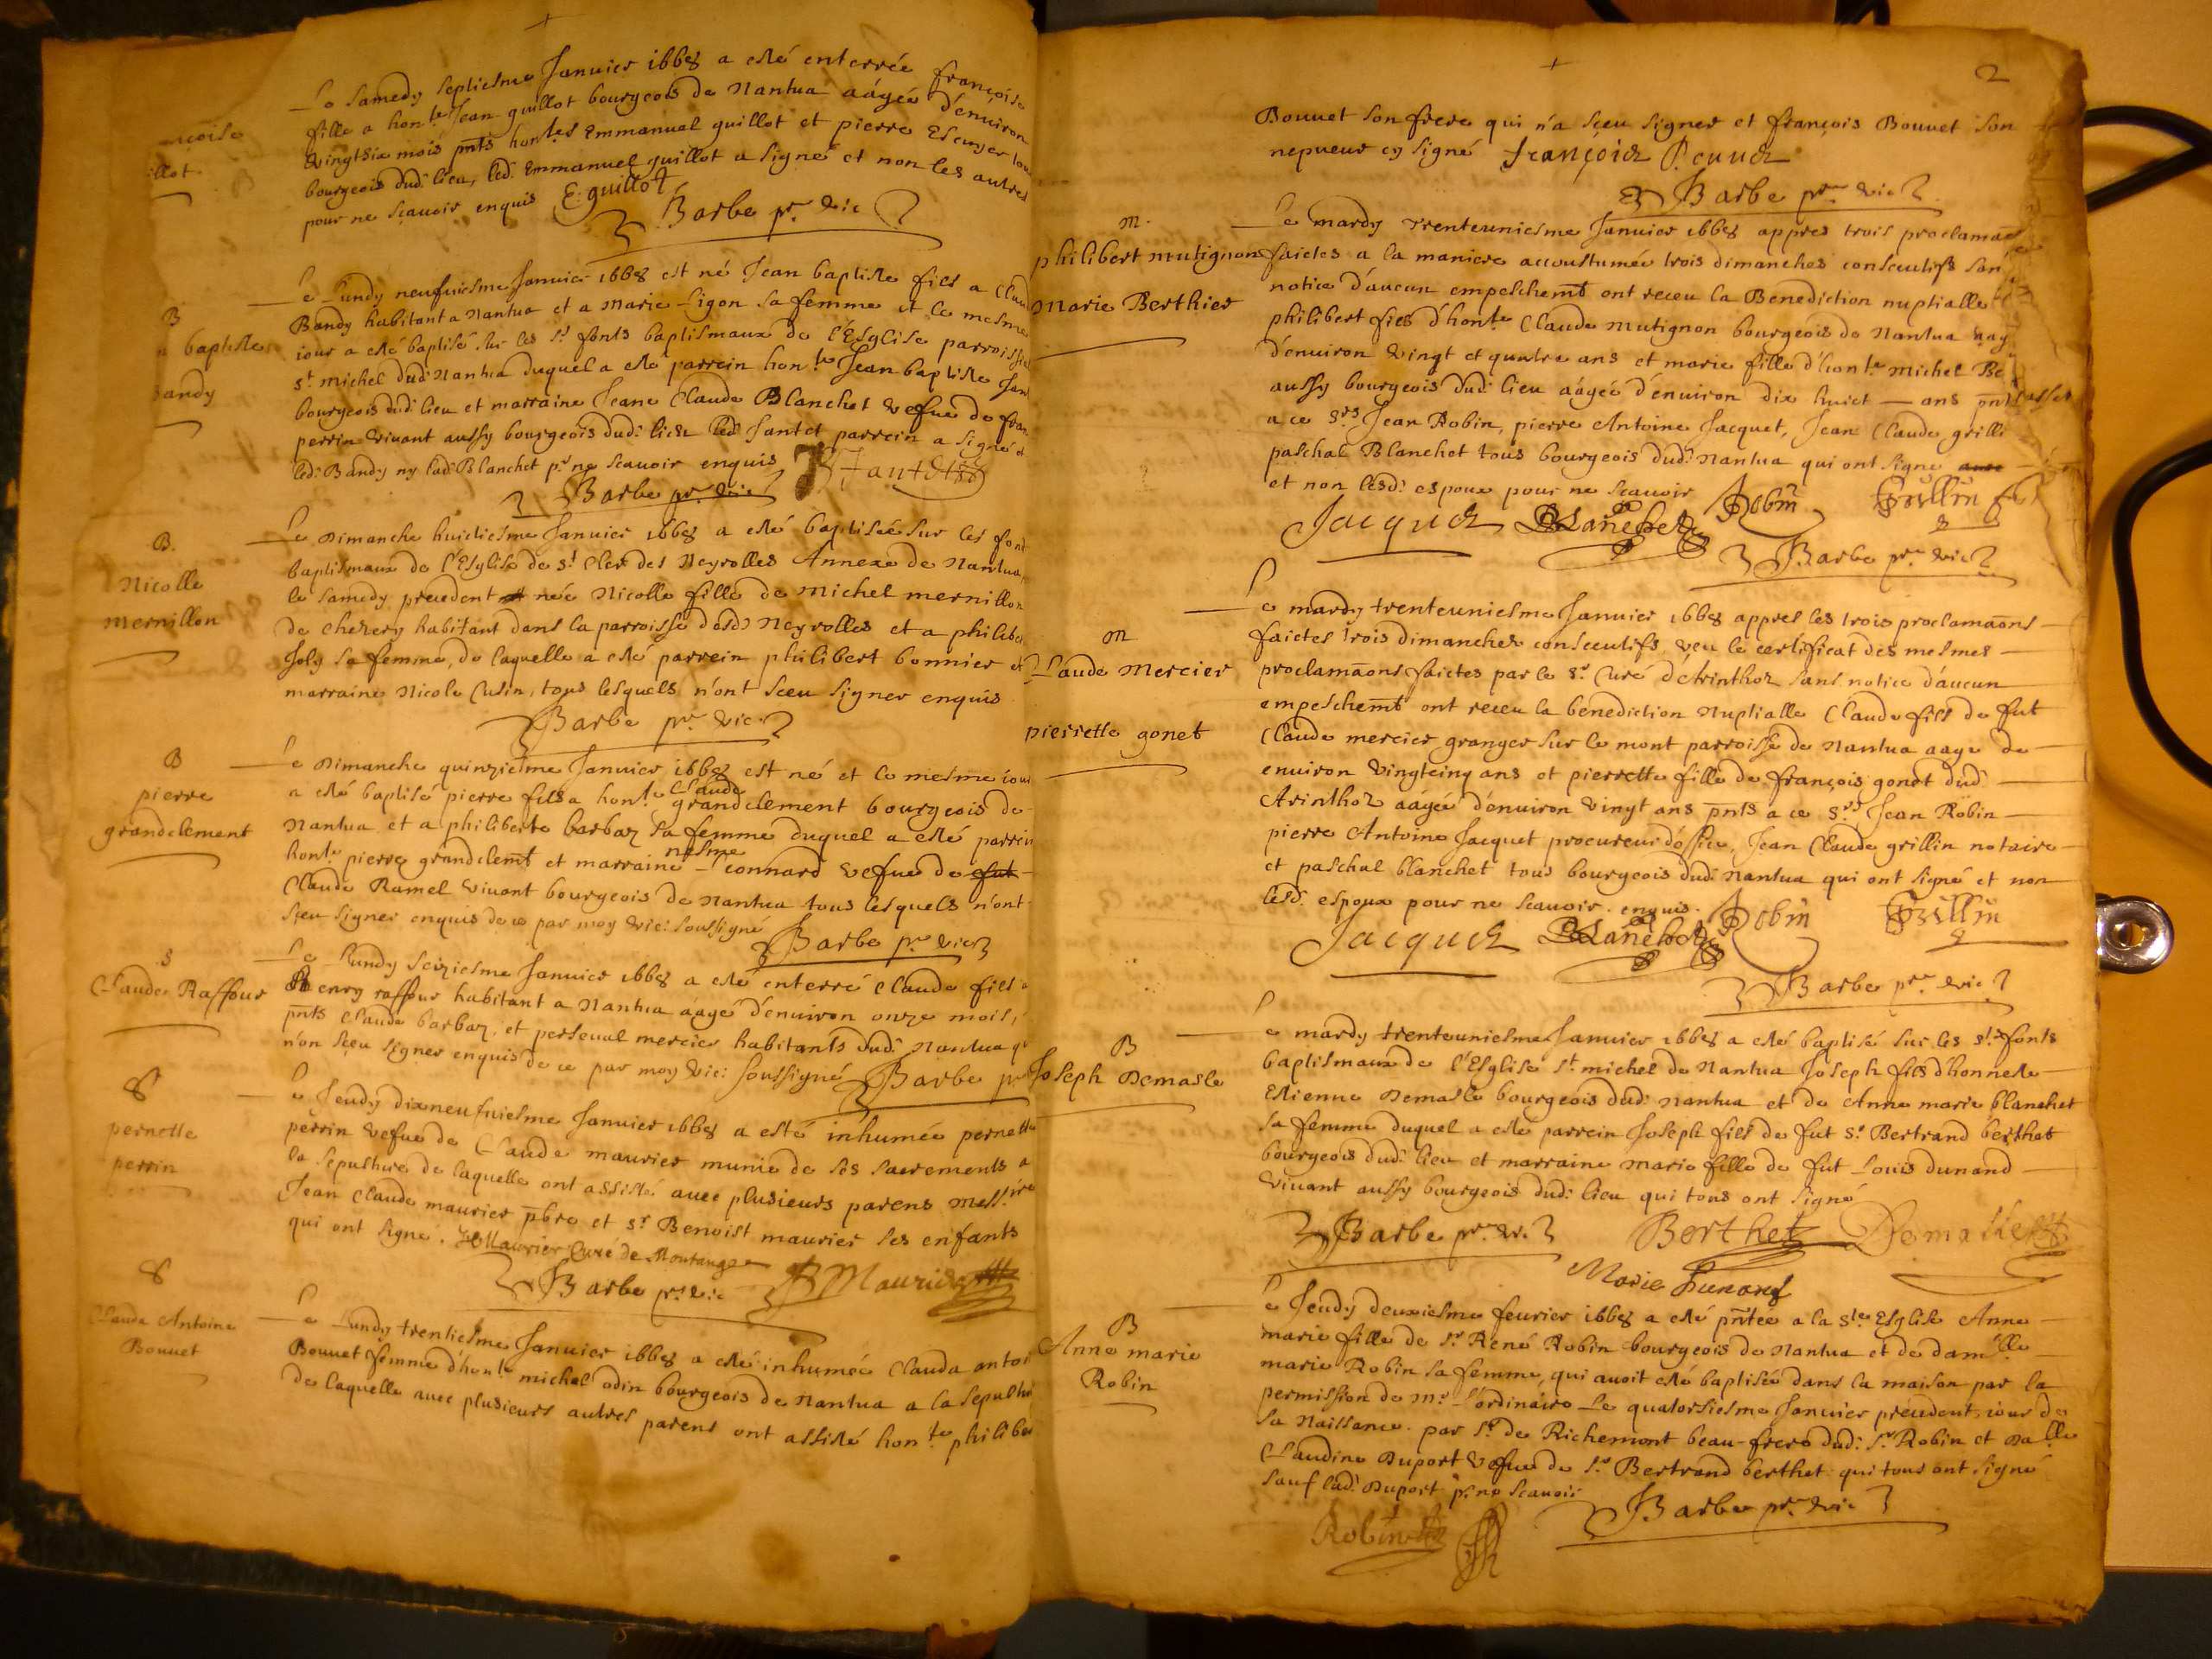 Le Samedy septiesme Januier 1668 a esté enterrée françoise
fille a hon.te Jean guillot bourgeois de Nantua aágée d'enuiron
vingtsix mois pnts hon.tes Emmanuel guillot et pierre Escuyer tous
bourgeois dud: lieu, led. Emmanuel guillot a signé et non les autres
pour ne sçauoir enquis E. guillot
Barbe pr. vic
B
n baptiste
Bandy
Le Lundy neufuiesme Januier 1668 est né Jean baptiste fils a Clau
Bandy habitant a Nantua et a Marie Ligon sa femme et le mesme
iour a esté baptisé sur les s.ts fonts baptismaux de l'Esglise parroissi
s.t Michel dud: Nantua duquel a esté parrein hon.te Jean baptiste Jan
bourgeois dud: lieu et marraine Jeane Claude Blanchet vefue de fran
perrin viuant aussy bourgeois dud: lieu led: Jantet parrein a signé et
led: Bandy ny lad: Blanchet p.r ne scauoir enquis Jantet
Barbe pr. vic
B.
Nicolle
mernillon
Le Dimanche huictiesme Januier 1668 a esté baptisée sur les font
baptismaux de l'Esglise de s.t Cler des Neyrolles Annexe de Nantua,
le samedy precedent née Nicolle fille de Michel mernillon
de Chezery habitant dans la parroisse desd: Neyrolles et a philibe
Joly sa femme, de laquelle a esté parrein philibert bonnier et
marraine Nicole Cusin, tous lesquels n'ont sceu signer enquis
Barbe pr. vic.
B
pierre
grandclement
Le Dimanche quinziesme Januier 1668 est né et le mesme iour
a esté baptisé pierre fils a hon.te Claude grandclement bourgeois de
Nantua et a philiberte barbaz sa femme duquel a esté parrein
hon.te pierre grandclemt et marraine nesme connard vefue de fut
Claude Ramel viuant bourgeois de Nantua tous lesquels n'ont
sçeu signer enquis de ce par moy vic: soussigné
Barbe pr. vic
S
Claude Raffour
Le Lundy seiziesme Januier 1668 a esté enterré Claude fils a
henry raffour habitant a Nantua aágé d'enuiron onze mois,
pnts Claude barbaz, et perseual mercier habitants dud: Nantua q
n'on sçeu signer enquis de ce par moy vic: soussigné Barbe pr
S
pernette
perrin
Le Jeudy dixneufuiesme Januier 1668 a esté inhumée pernette
perrin vefue de Claude maurier munie de ses sacrements a
la sepulture de laquelle ont assisté auec plusieurs parens Messire
Jean Claude maurier pbre et s.r Benoist maurier ses enfants
qui ont signé. Maurier Curé de Montange
Barbe pr. vic B Maurier
S
Claude Antoine
Bouuet
Le Lundy trentiesme Januier 1668 a esté inhumée Clauda antoi
Bouuet femme d'hon.te michel odin bourgeois de Nantua a la sepultu
de laquelle auec plusieurs autres parens ont assisté hon.te philibe
2
Bouuet son frere qui n'a sçeu signer et françois Bouuet son
nepueur cy signé françois Bouuet
Barbe pr. vic
m.
philibert mutignon
Marie Berthier
Le mardy trenteuniesme Januier 1668 appres trois proclama
faictes a la maniere accoustumée trois dimanches consecutifs san
notice d'aucun empeschemt ont receu la Benediction nuptialle
philibert fils d'hon.te Claude mutignon bourgeois de Nantua aag
d'enuiron vingt et quatre ans et marie fille d'hon.te michel Be
aussy bourgeois dud: lieu aágée d'enuiron dix huict — ans pnts
a ce s.rs Jean Robin, pierre Antoine Jacquet, Jean Claude grilli
paschal Blanchet tous bourgeois dud: Nantua qui ont signe auec
et non lesd: espoux pour ne scauoir Robin Grillin
Jacquet Blanchet
Barbe pr. vic
m
Claude Mercier
pierrette gonet
Le mardy trenteuniesme Januier 1668 appres les trois proclamaons
faictes trois dimanches consecutifs, veu le certificat des mesmes
proclamaons faictes par le s.r Curé d'Arinthoz sans notice d'aucun
empeschemt ont receu la benediction Nuptialle Claude fils de fut
Claude mercier granger sur le mont parroisse de Nantua aage de
enuiron vingtcinq ans et pierrette fille de françois gonet dud:
Arinthoz aágée d'enuiron vingt ans pnts a ce s.rs Jean Robin
pierre Antoine Jacquet procureur d'office, Jean Claude grillin notaire
et paschal blanchet tous bourgeois dud: Nantua qui ont signé et non
lesd. espoux pour ne scauoir. enquis. Robin Grillin
Jacquet Blanchet
Barbe pr. vic.
B
Joseph Demasle
Le mardy trenteuniesme Januier 1668 a esté baptisé sur les s.ts fonts
baptismaux de l'Esglise s.t michel de Nantua Joseph fils d'honneste
Estienne Demasle bourgeois dud: Nantua et de Anne marie blanchet
sa femme duquel a esté parrein Joseph fils de fut s.r Bertrand berthet
bourgeois dud: lieu et marraine marie fille de fut Louis dunand
viuant aussy bourgeois dud: lieu qui tous ont signé
Barbe pr. vic. Berthet Demasle
Marie Dunand
B
Anne marie
Robin
Le Jeudy deuxiesme feurier 1668 a esté pntee a la s.te Esglise Anne
marie fille de s.r René Robin bourgeois de Nantua et de dam.lle
marie Robin sa femme, qui auoit esté baptisée dans la maison par la
permission de M.r L'ordinaire Le quatorsiesme Januier precedent, iour de
sa Naissance. par s.r de Richemont beau-frere dud: s.r Robin et Da.lle
Claudine Duport vefue de s.r Bertrand berthet qui tous ont signé
sauf lad: Duport p.r ne scauoir
Barbe pr. vic
Robin